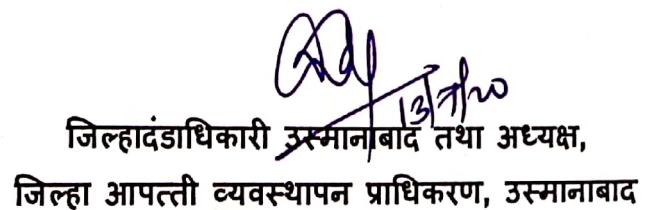 13/7/20
जिल्हादंडाधिकारी उस्मानाबाद तथा अध्यक्ष,
जिल्हा आपत्ती व्यवस्थापन प्राधिकरण, उस्मानाबाद